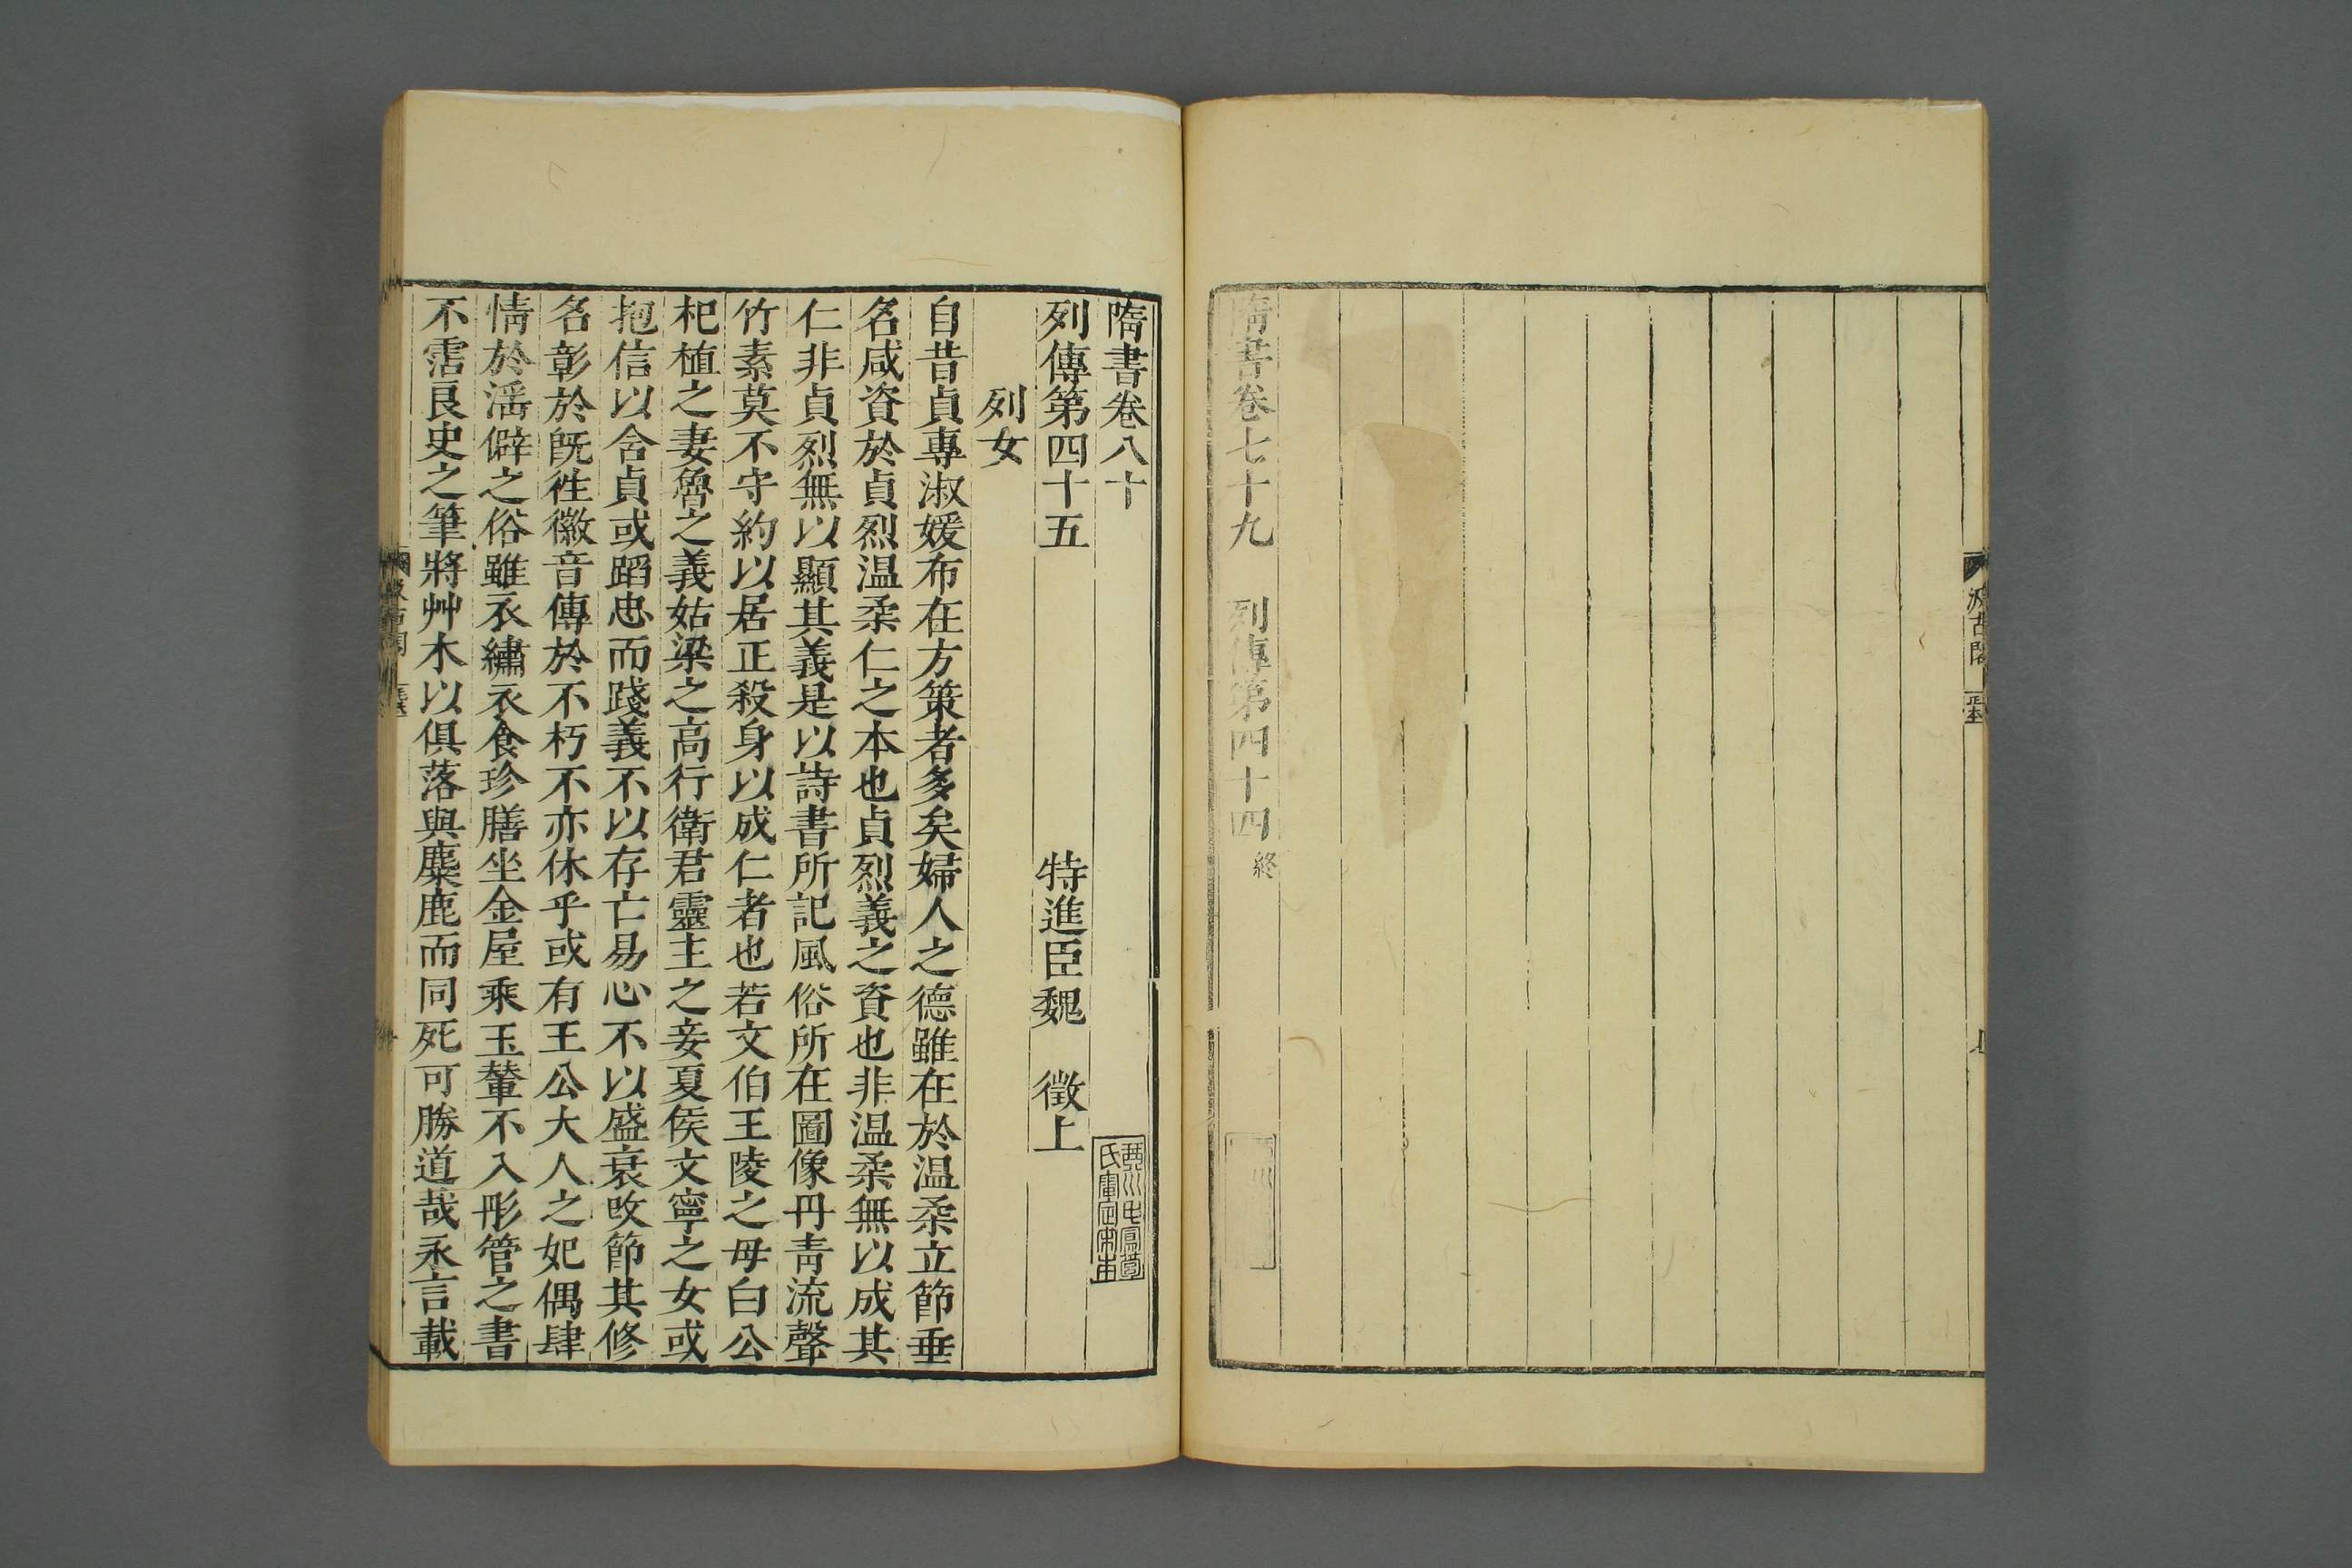 汲古閣
隋書卷七十九　列傳第四十四終
隋書卷八十
列傳第四十五　特進臣魏　徵上
列女
自昔貞專淑媛布在方策者多矣婦人之德雖在於温柔立節垂
名咸資於貞烈温柔仁之本也貞烈義之資也非温柔無以成其
仁非貞烈無以顯其義是以詩書所記風俗所在圖像丹靑流聲
竹素莫不守約以居正殺身以成仁者也若文伯王陵之母白公
杞植之妻魯之義姑梁之高行衛君靈主之妾夏侯文寧之女或
抱信以含貞或蹈忠而踐義不以存亡易心不以盛衰改節其修
名彰於旣徃徽音傳於不朽不亦休乎或有王公大人之妃偶肆
情於滛僻之俗雖衣繡衣食珍膳坐金屋乘玉輦不入彤管之書
不霑良史之筆將艸木以俱落與麋鹿而同死可勝道哉永言載